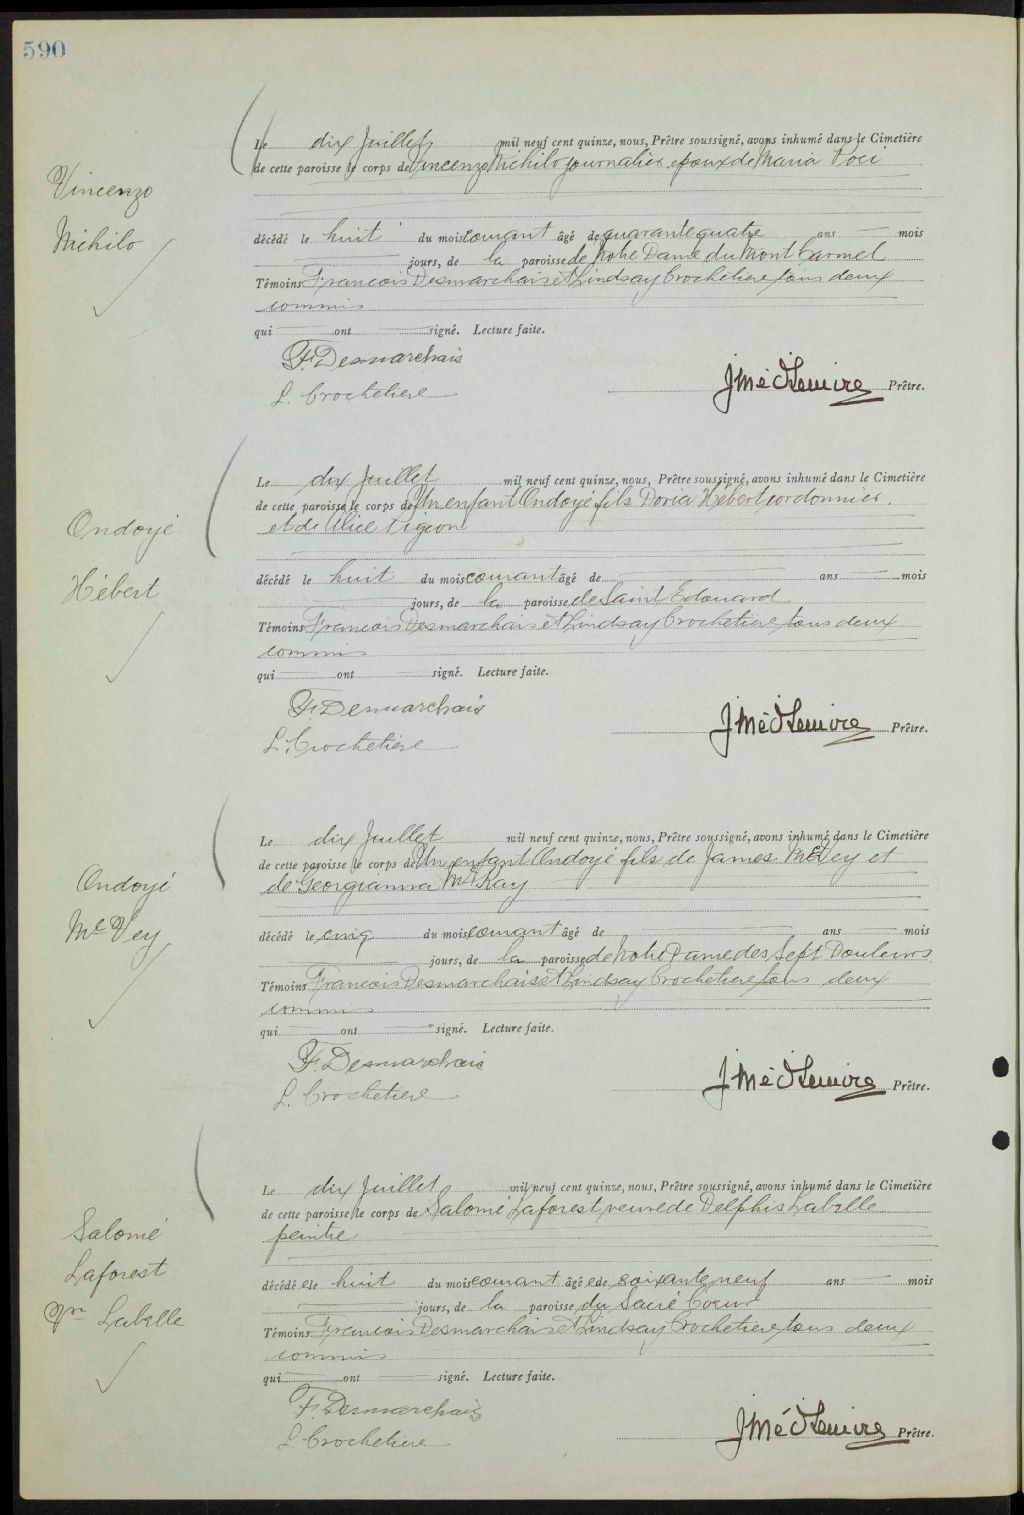 590
Vincenzo
Nichilo
Le dix Juillet mil neuf cent quinze, nous, Prêtre soussigné, avons inhumé dans le Cimetière
de cette paroisse le corps de Vincenzo Nichilo journalier époux de Maria
décédé le huit du mois courant âgé de quarante quatre ans mois
jours, de la paroisse de Notre Dame du Mont Carmel
Témoins François Desmarchais et Lindsay Crochetiere tous deux
commis
qui ont signé. Lecture faite.
F. Desmarchais
L. Crochetiere
Prêtre.
Ondoyé
Hébert
Le dix Juillet mil neuf cent quinze, nous, Prêtre soussigné, avons inhumé dans le Cimetière
de cette paroisse le corps de Un enfant Ondoyé fils Doria Hébert cordonnier
et de Alice Pigeon
décédé le huit du mois courant âgé de ans mois
jours, de la paroisse de Saint Edouard
Témoins François Desmarchais et Lindsay Crochetiere tous deux
commis
qui ont signé. Lecture faite.
F. Desmarchais
L. Crochetiere
Prêtre.
Ondoyé
Mc Vey
Le dix Juillet mil neuf cent quinze, nous, Prêtre soussigné, avons inhumé dans le Cimetière
de cette paroisse le corps de Un enfant Ondoyé fils de James McVey et
de Georgianna Mc Kay
décédé le cinq du mois courant âgé de ans mois
jours, de la paroisse de Notre Dame des Sept Douleurs
Témoins François Desmarchais et Lindsay Crochetiere tous deux
commis
qui ont signé. Lecture faite.
F. Desmarchais
L. Crochetiere
Prêtre.
Salomé
Laforest
Vve Labelle
Le dix Juillet mil neuf cent quinze, nous, Prêtre soussigné, avons inhumé dans le Cimetière
de cette paroisse le corps de Salomé Laforest veuve de Delphis Labelle
peintre
décédé e le huit du mois courant âgé e de soixante neuf ans mois
jours, de la paroisse du Sacré Coeur
Témoins François Desmarchais et Lindsay Crochetiere tous deux
commis
qui ont signé. Lecture faite.
F. Desmarchais
L. Crochetiere
Prêtre.